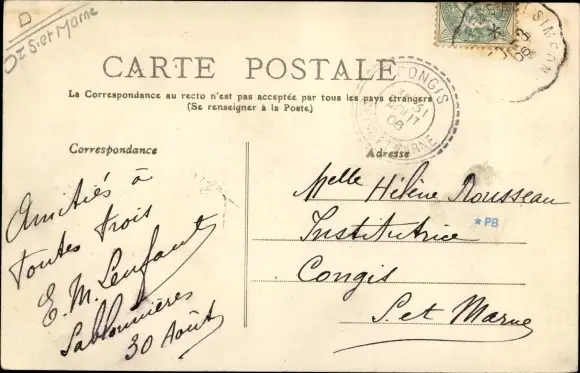 D
Dt S. et Marne
CARTE POSTALE
La Correspondance au recto n'est pas acceptée par tous les pays étrangers
(Se renseigner à la Poste)
CONGIS
31
AOUT
06
SEINE ET MARNE
SIMEON
Correspondance
Amitiés à
toutes trois
E. M. Lenfant
Sablonnières
30 Août
Adresse
Melle Hélène Rousseau
Institutrice
* PB
Congis
S. et Marne